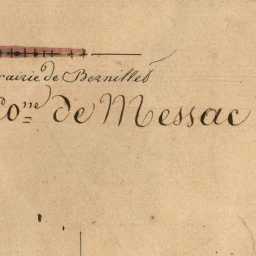 rairie de Bornilles
Com.ne de Messac